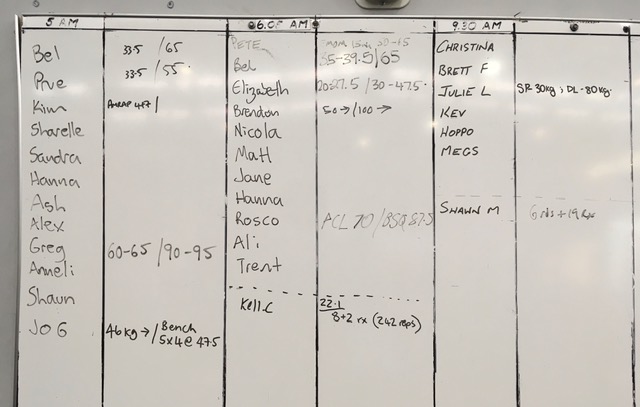 5 AM
Bel 33.5 / 65
Prue 33.5 / 55
Kim AMRAP
Sharelle
Sandra
Hanna
Ash
Alex
Greg 60-65 / 90-95
Anneli
Shaun
JO G 46kg → / Bench
5x4 @ 47.5
AM
PETE
Bel 35-39.5 / 65
Elizabeth 20-27.5 / 30-47.5
Brendon 50 → / 100 →
Nicola
Matt
Jane
Hanna
Rosco 70 / BSQ 87.5
Ali
Trent
Kell.C 22.1
8+2 rx (242 reps)
9.30 AM
CHRISTINA
BRETT F
JULIE L SR 30kg ; DL - 80kg.
KEV
HOPPO
MEGS
SHAWN M 6 rds + 19 Rx